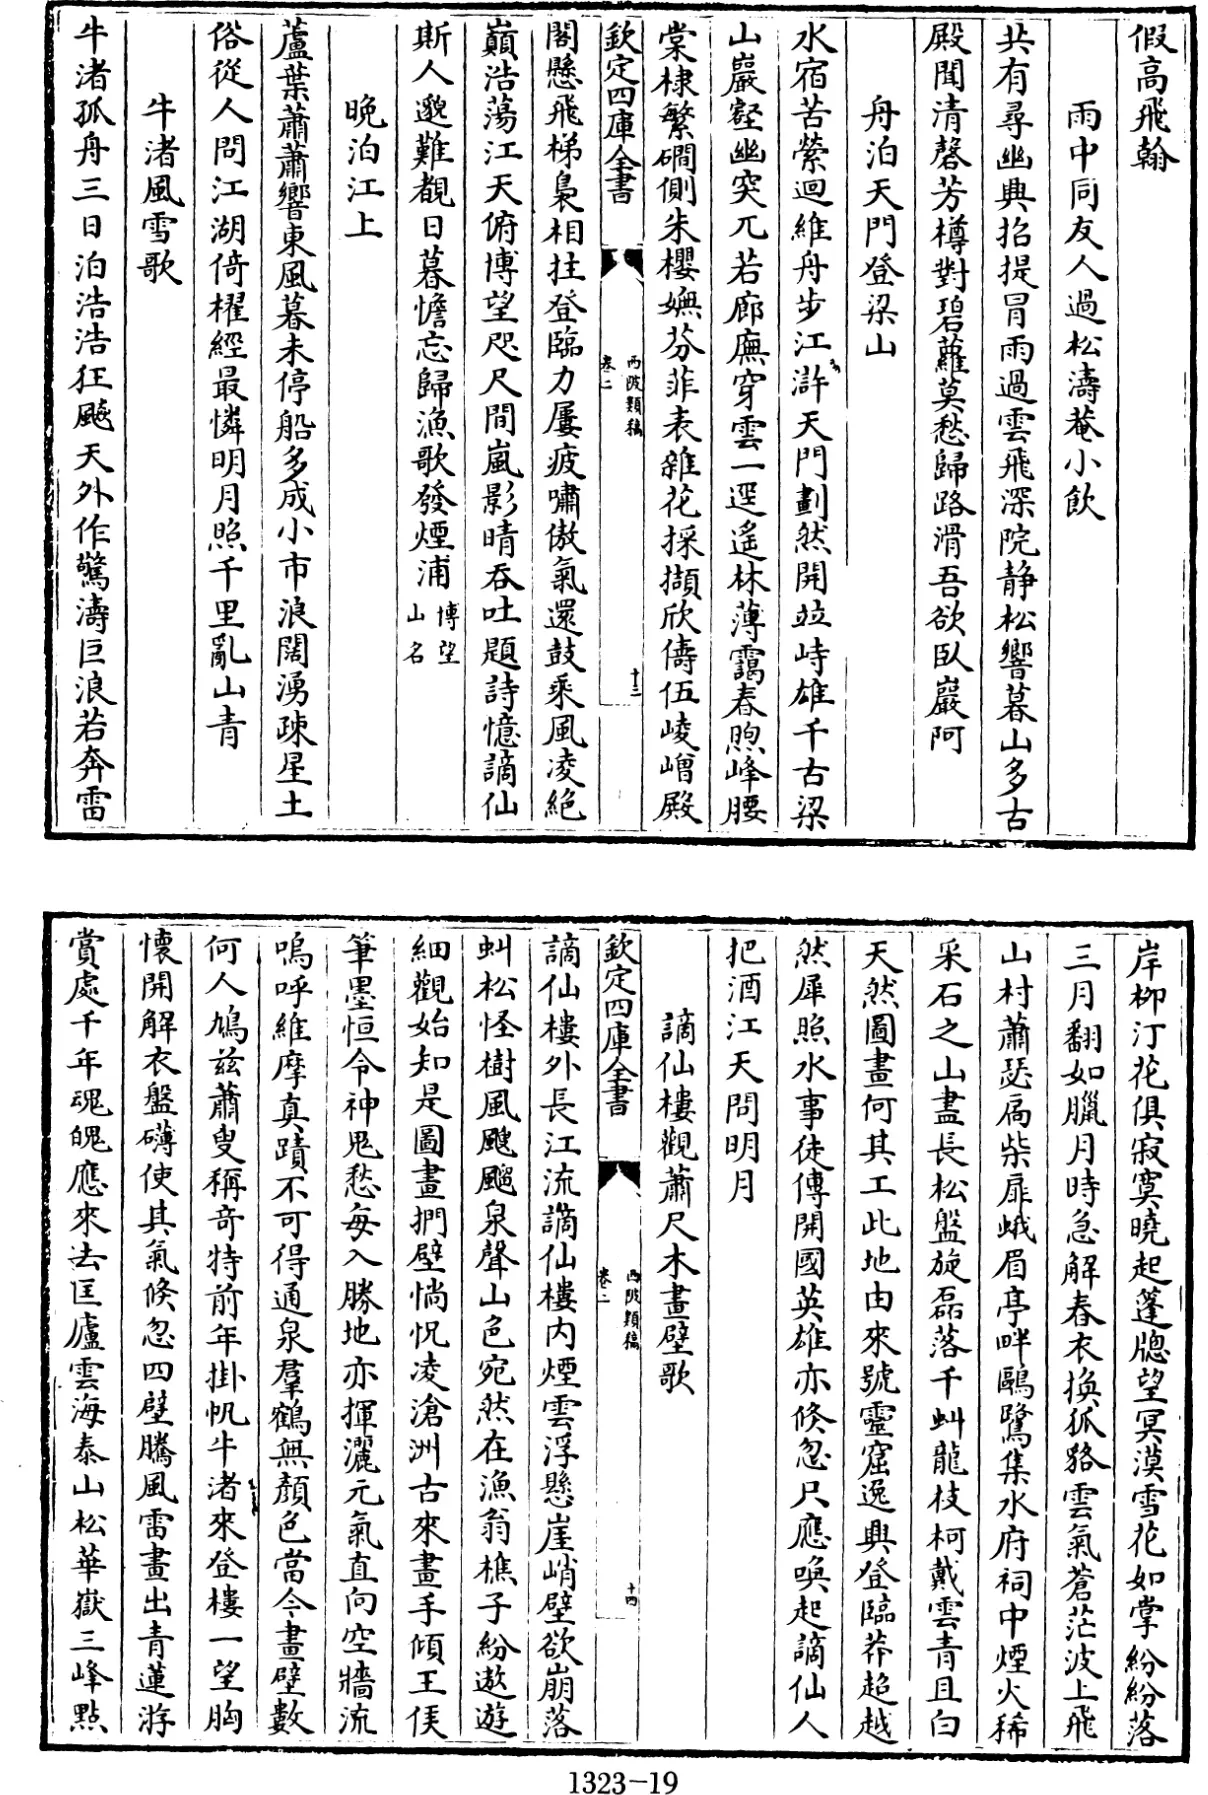 假高飛翰
雨中同友人過松濤菴小飲
共有尋幽興招提冒雨過雲飛深院静松響暮山多古
殿聞清磬芳樽對碧蘿莫愁歸路滑吾欲臥巖阿
舟泊天門登梁山
水宿苦縈迴維舟步江滸天門劃然開竝峙雄千古梁
山巖壑幽突兀若廊廡穿雲一逕遙林薄靄春煦峰腰
棠棣繁磵側朱櫻嫵芬菲表雜花採擷欣儔伍崚嶒殿
欽定四庫全書
西陂類稿
卷二
十三
閣懸飛梯裊相拄登臨力屢疲嘯傲氣還鼓乘風凌絶
巔浩蕩江天俯博望咫尺間嵐影晴吞吐題詩憶謫仙
斯人邈難覩日暮憺忘歸漁歌發煙浦博望山名
晚泊江上
蘆葉蕭蕭響東風暮未停船多成小市浪闊湧疎星土
俗從人問江湖倚櫂經最憐明月照千里亂山青
牛渚風雪歌
牛渚孤舟三日泊浩浩狂飇天外作驚濤巨浪若奔雷
岸柳汀花俱寂寞曉起蓬牕望冥漠雪花如掌紛紛落
三月翻如臘月時急解春衣換狐貉雲氣蒼茫波上飛
山村蕭瑟扃柴扉蛾眉亭畔鷗鷺集水府祠中煙火稀
采石之山盡長松盤旋磊落千虯龍枝柯戴雲青且白
天然圖畫何其工此地由來號靈窟逸興登臨莽超越
然犀照水事徒傳開國英雄亦倐忽只應喚起謫仙人
把酒江天問明月
謫仙樓觀蕭尺木畫壁歌
欽定四庫全書
西陂類稿
卷二
十四
謫仙樓外長江流謫仙樓内煙雲浮懸崖峭壁欲崩落
虯松怪樹風颼飀泉聲山色宛然在漁翁樵子紛遨遊
細觀始知是圖畫捫壁惝怳凌滄洲古來畫手傾王侯
筆墨恒令神鬼愁每入勝地亦揮灑元氣直向空牆流
嗚呼維摩真蹟不可得通泉羣鶴無顏色當今畫壁數
何人鳩兹蕭叟稱奇特前年掛帆牛渚來登樓一望胸
懷開解衣盤礴使其氣倐忽四壁騰風雷畫出青蓮游
賞處千年魂魄應來去匡廬雲海泰山松華嶽三峰點
1323-19